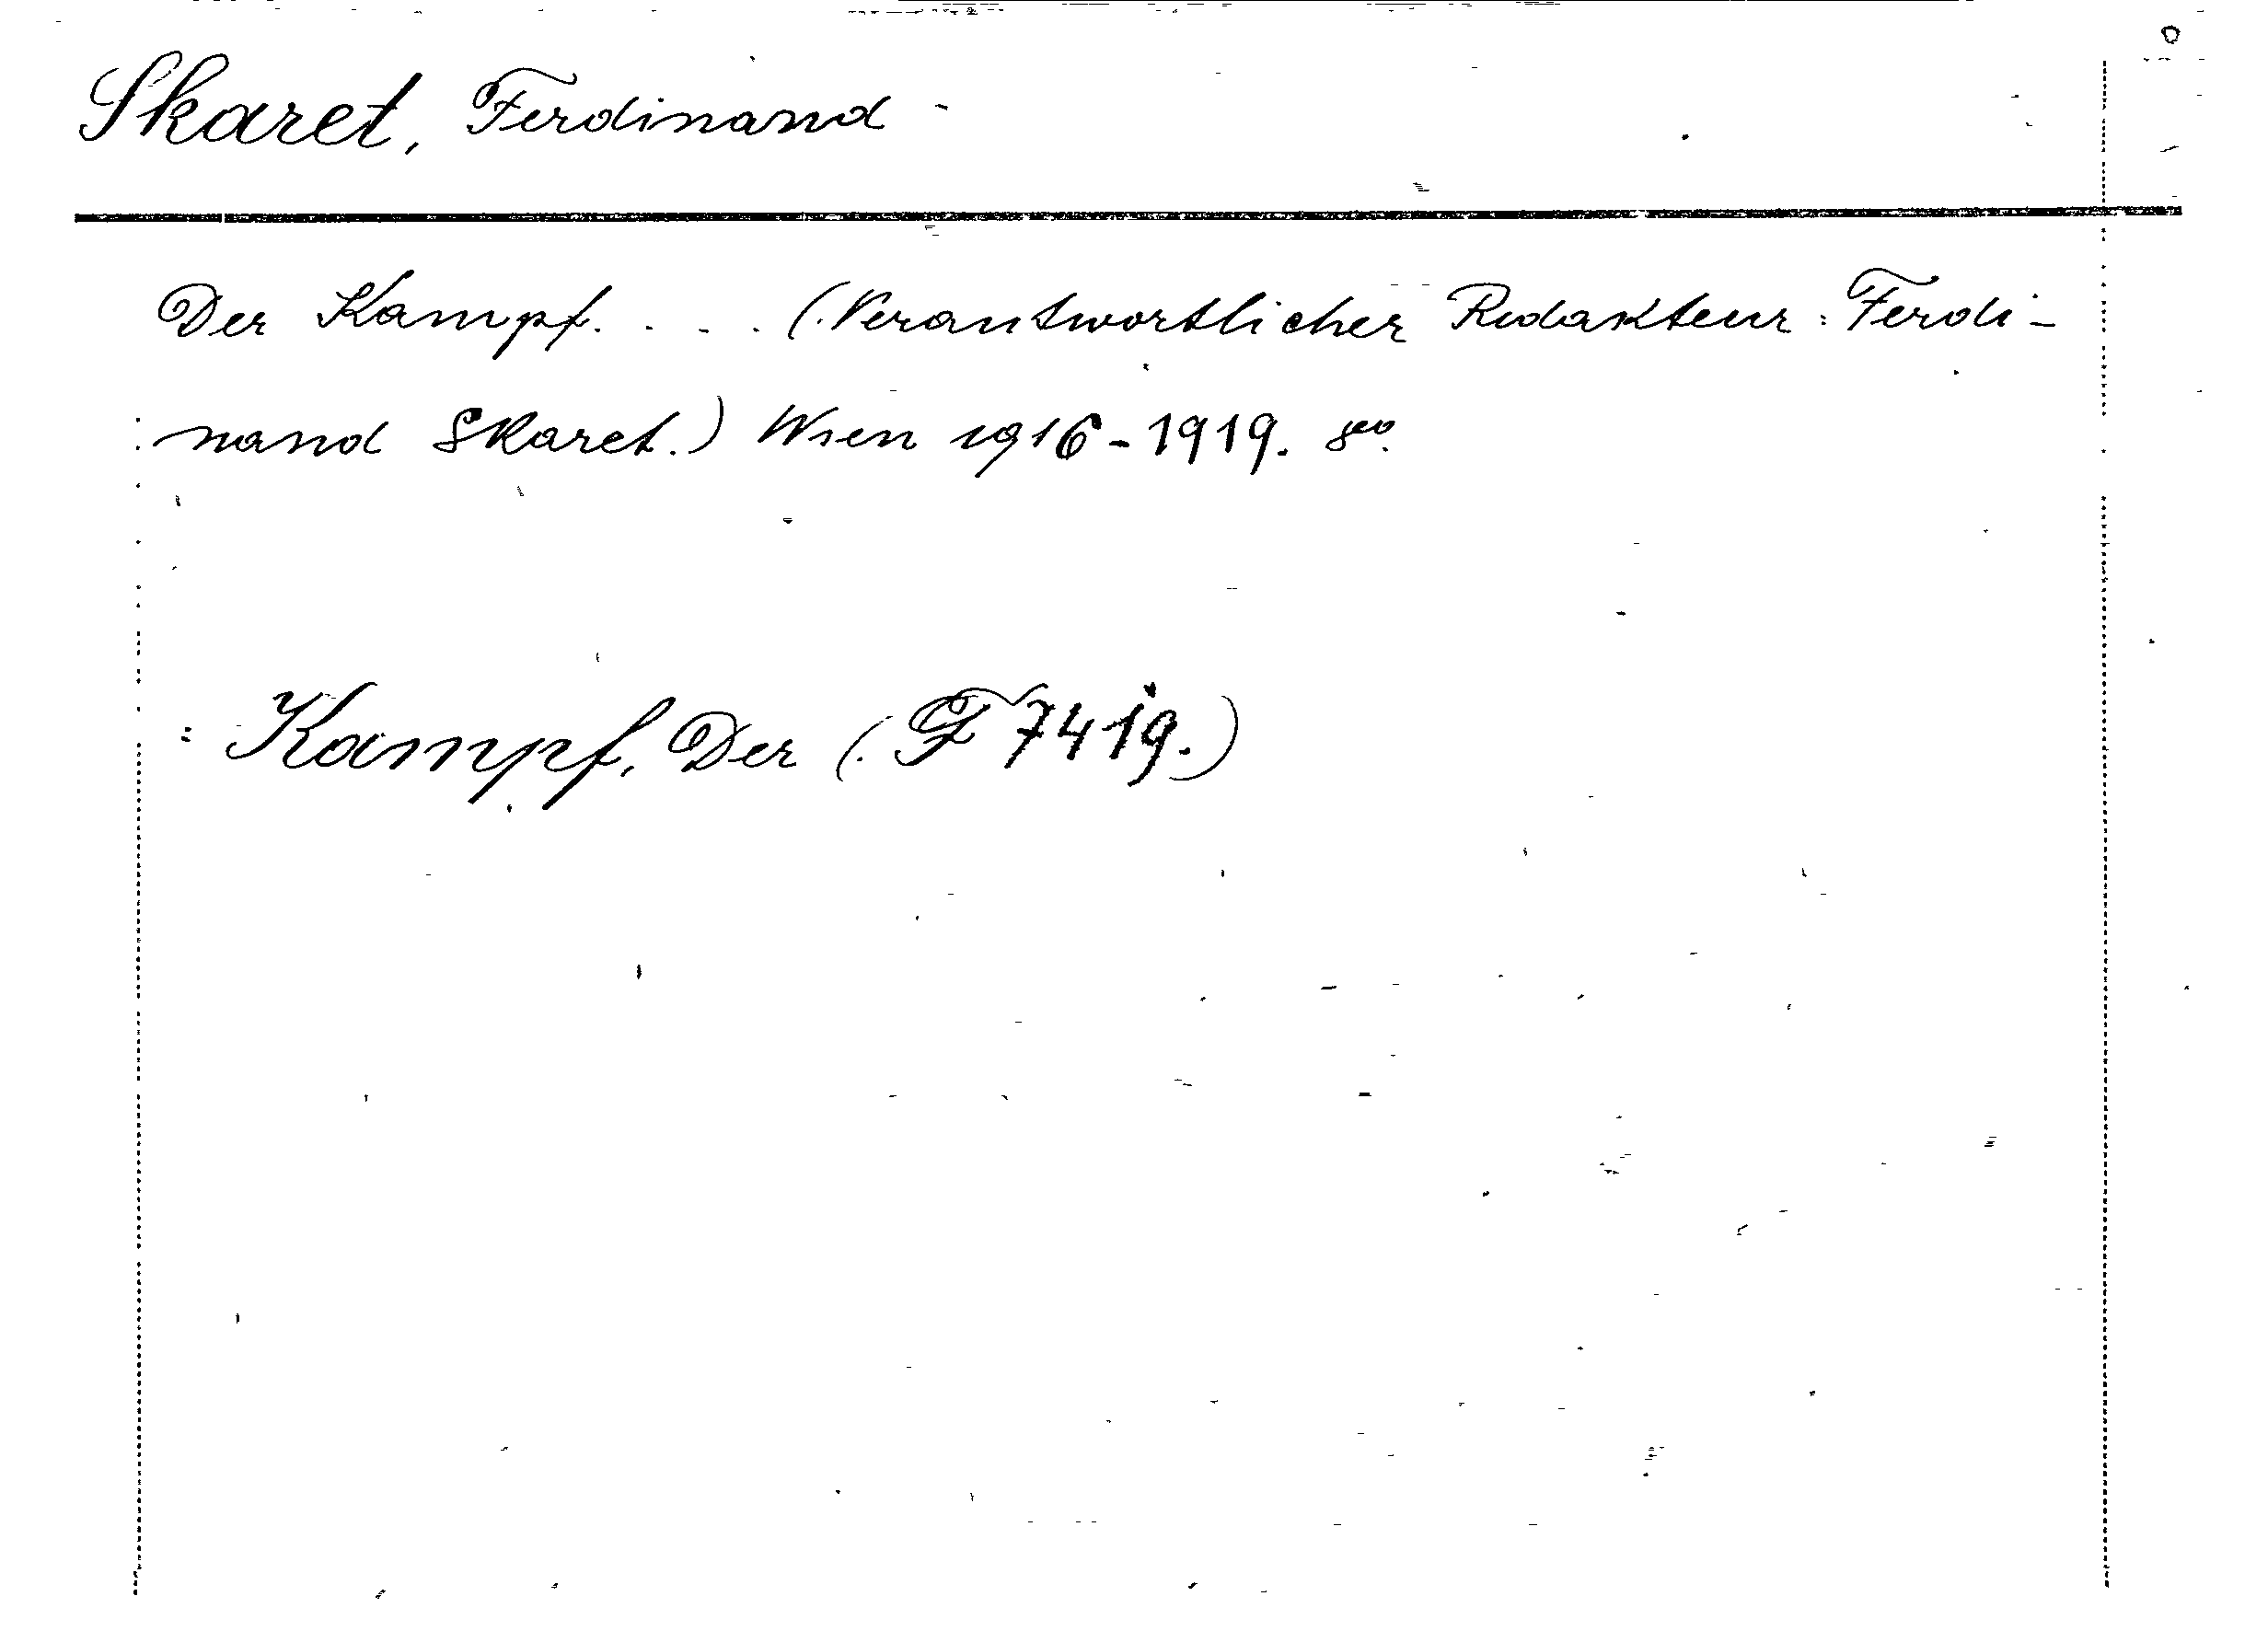 Skaret, Ferdinand
Der Kampf. . . . (Verantwortlicher Redakteur: Ferdi-
nand Skaret.) Wien 1916-1919. 8°.
: Kampf, Der (F 7419.)